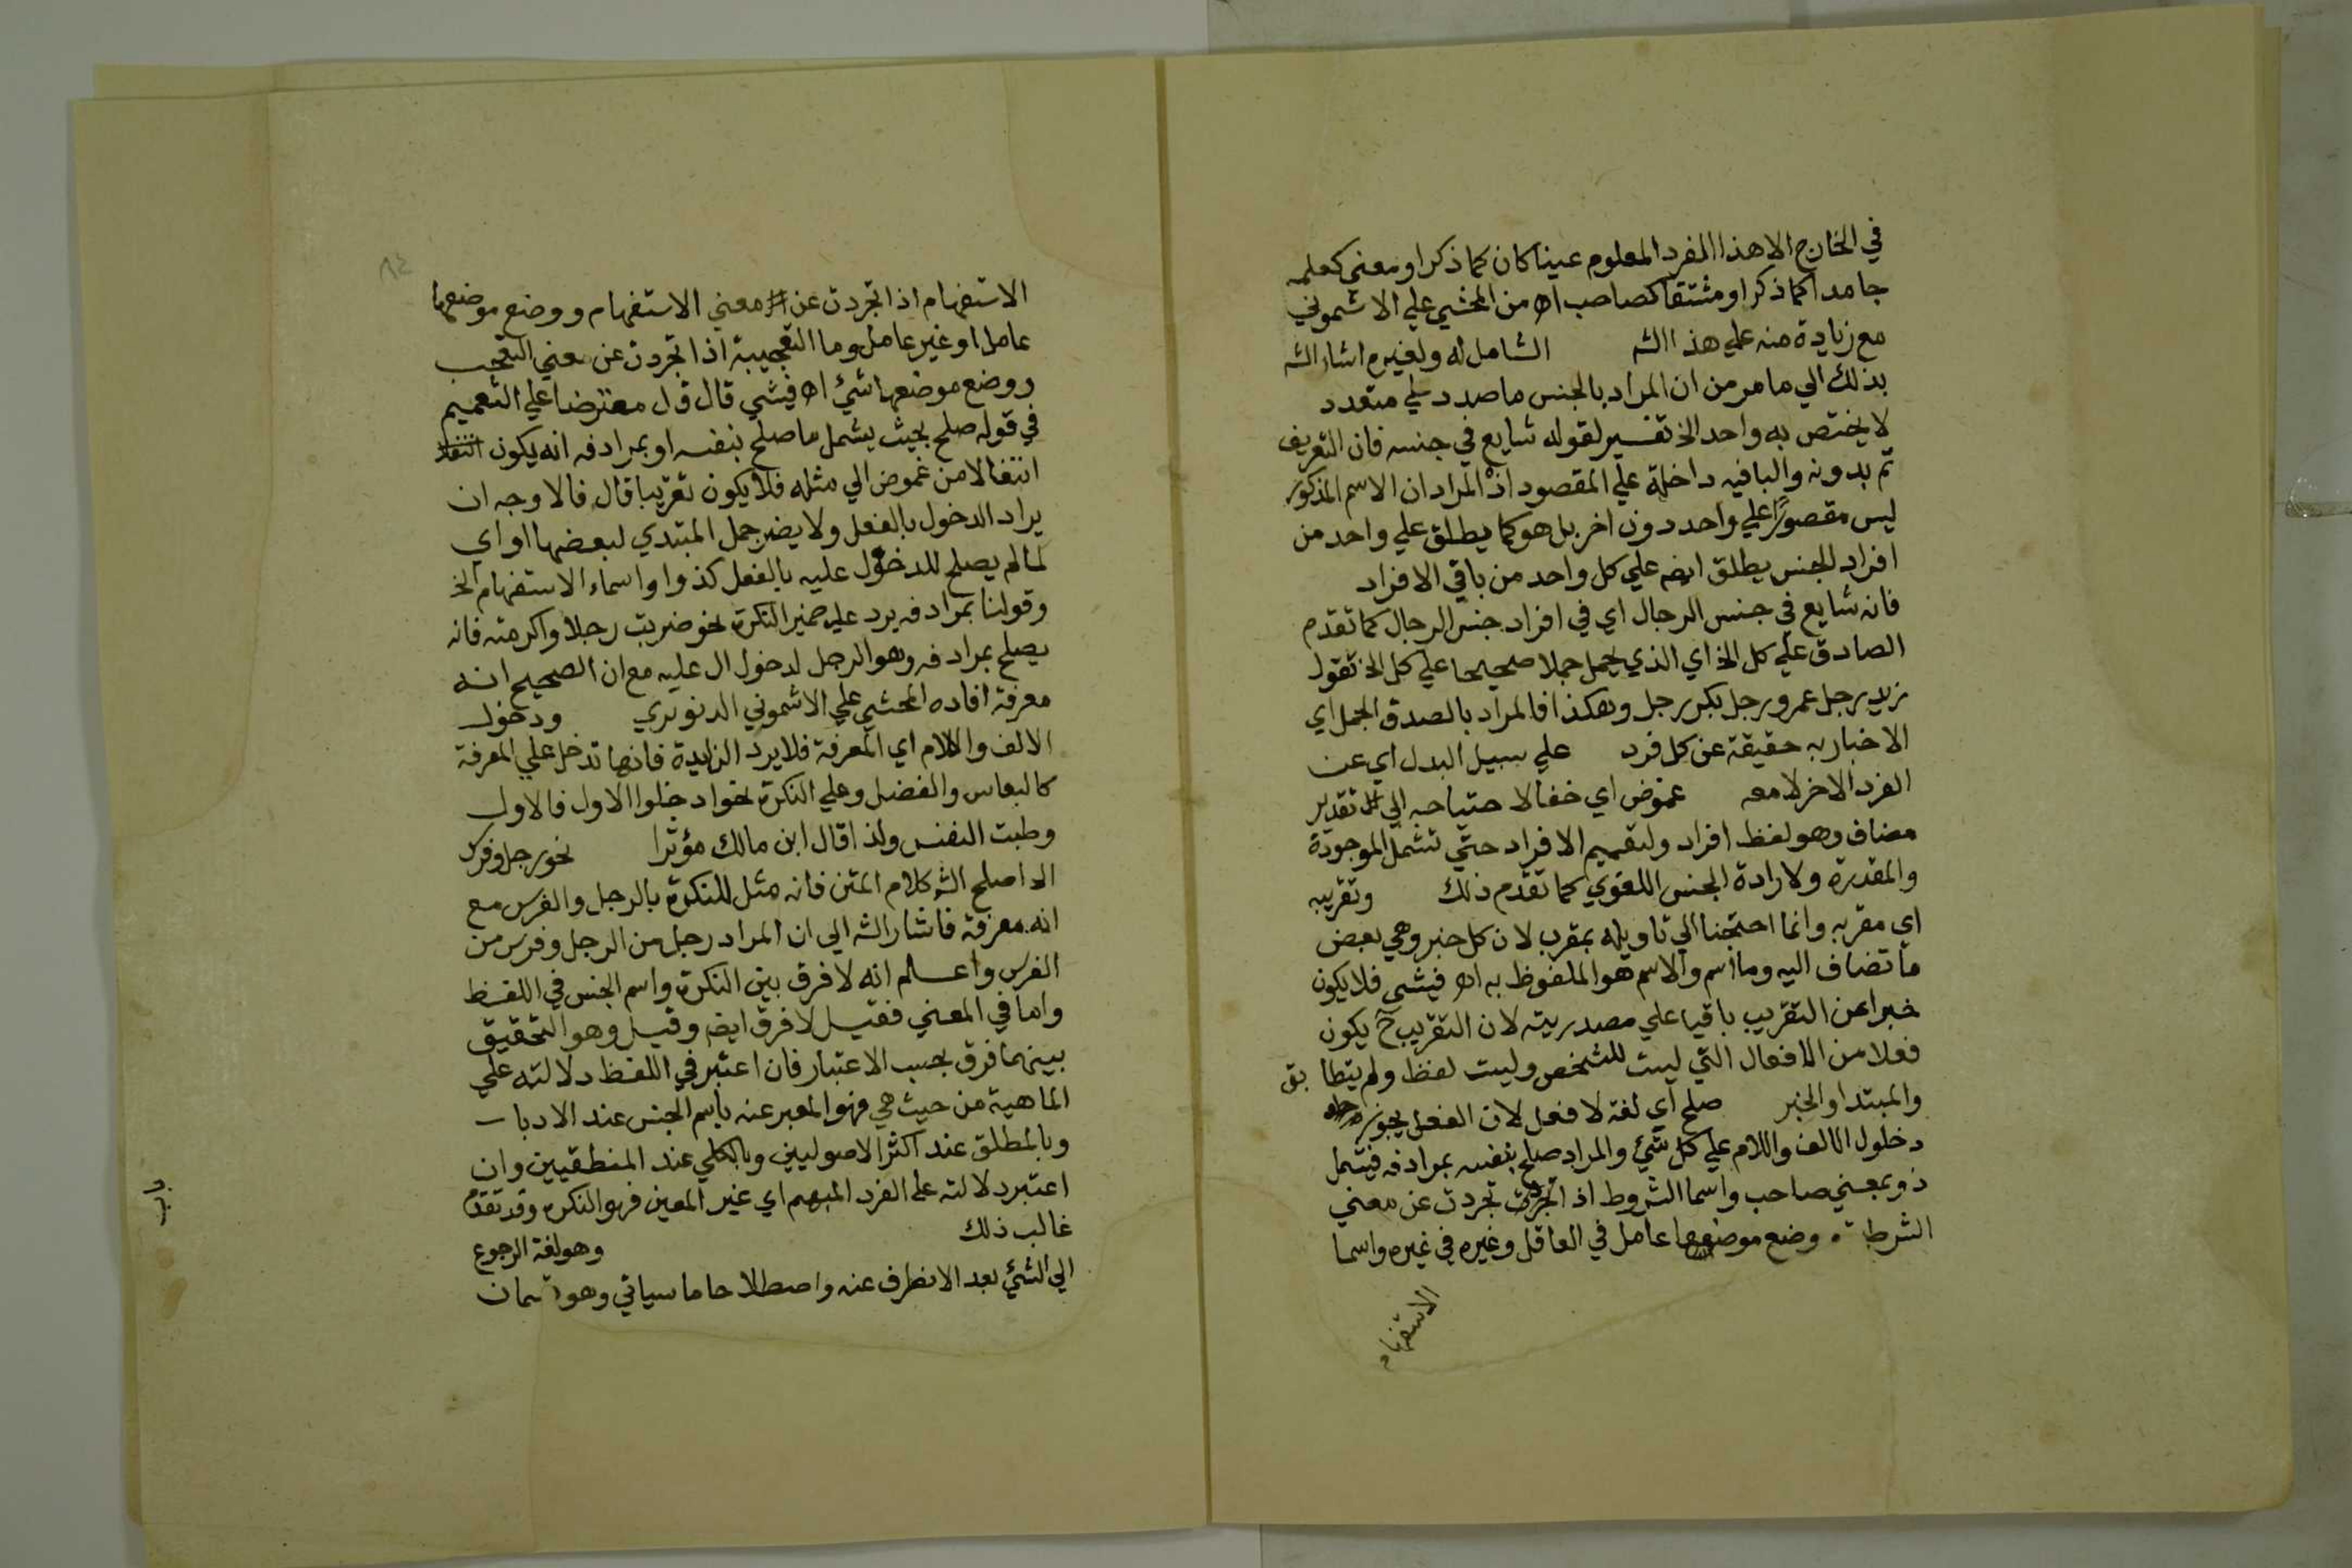 في الخارج الا هذا المفرد المعلوم عينا كان كما ذكر او معني كعلمه
جامدا كما ذكر او مشتقا كصاحب اه من المحشي علي الاشموني
مع زيادة منه علي هذا الشه الشامل له ولغيره اشار الشه
بذلك الي ما مر من ان المراد بالجنس ما صدد علي متعدد
لا يختص به واحد الخ تفسير لقوله شايع في جنسه فان التعريف
تم بدونه والبا فيه داخلة علي المقصود اذ المراد ان الاسم المذكور
ليس مقصورا علي واحد دون اخر بل هو كما يطلق علي واحد من
افراد الجنس يطلق ايضه علي كل واحد من باقي الافراد
فانه شايع في جنس الرجال اي في افراد جنس الرجال كما تقدم
الصادق علي كل الخ اي الذي يحمل حملا صحيحا علي كل الخ تقول
زيد رجل عمرو رجل بكر رجل وهكذا فالمراد بالصدق الحمل اي
الاخبار به حقيقة عن كل فرد علي سبيل البدل اي عن
الفرد الاخر لا معه غموض اي خفا لاحتياجه الي تقدير
مضاف وهو لفظ افراد ولتعميم الافراد حتي تشمل الموجودة
والمقدرة ولارادة الجنس اللغوي كما تقدم ذلك وتقريبه
اي مقربه وانما احتجنا الي تاويله بمقرب لان كل خبر وهي بعض
ما تضاف اليه وما اسم والاسم هو الملفوظ به اه فيشي فلا يكون
خبرا عن التقريب باقيا علي مصدريته لان التقريب ح يكون
فعلا من الافعال التي ليست للشخص وليست لفظ ولم يتطابق
والمبتدا والخبر صلح اي لغة لا فعل لان الفعل يجوز
دخلول الالف واللام علي كل شئ والمراد صلح بنفسه بمرادفه فيشمل
ذو بمعني صاحب واسما الشروط اذ تجردت عن معني
الشرط وضع موضعها عامل في العاقل وغيره في غيره واسما
الاستفهام
الاستفهام اذا تجردت عن معني الاستفهام ووضع موضعها
عامل او غير عامل وما التعجبية اذا تجردت عن معني التعجب
ووضع موضعها شئ اه فيشي قال قل معترضا علي التعميم
في قوله صلح بحيث يشمل ما صلح بنفسه او بمرادفه انه يكون
انتقالا من غموض الي مثله فلا يكون تقريبا قال فالاوجه ان
يراد الدخول بالفعل ولا يضر جمل المبتدي لبعضها او اي
لما لم يصلح للدخول عليه بالفعل كذوا واسماء الاستفهام الخ
وقولنا بمرادفه يرد عليه ضمير النكرة نحو ضربت رجلا واكرمته فانه
يصلح بمرادفه وهو الرجل لدخول ال عليه مع ان الصحيح انه
معرفة افاده المحشي علي الاشموني الدنوبري ودخول
الالف واللام اي المعرفة فلا يرد الزايدة فانها تدخل علي المعرفة
كالبعاس والفضل وعلي النكرة نحو ادخلوا الاول فالاول
وطبت النفس ولذا قال ابن مالك مؤثرا نحو رجل وفرس
الد اصلح الشه كلام المتن فانه مثل للنكرة بالرجل والفرس مع
انه معرفة فاشار الشه الي ان المراد رجل من الرجل وفرس من
الفرس واعلم انه لا فرق بين النكرة واسم الجنس في اللفظ
واما في المعني فقيل لا فرق ايضه وقيل وهو التحقيق
بينهما فرق بحسب الاعتبار فان اعتبر في اللفظ دلالته علي
الماهية من حيث هي فهو المعبر عنه باسم الجنس عند الادبا
وبالمطلق عند اكثر الاصوليين وبالكلي عند المنطقيين وان
اعتبر دلالته علي الفرد المبهم اي غير المعين فهو النكرة وقد تقدم
غالب ذلك وهو لغة الرجوع
الي الشئ بعد الانصراف عنه واصطلاحا ما سياتي وهو قسمان
باب